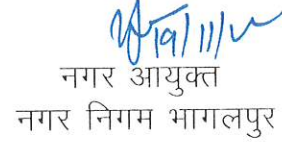 19/11/
नगर आयुक्त
नगर निगम भागलपुर